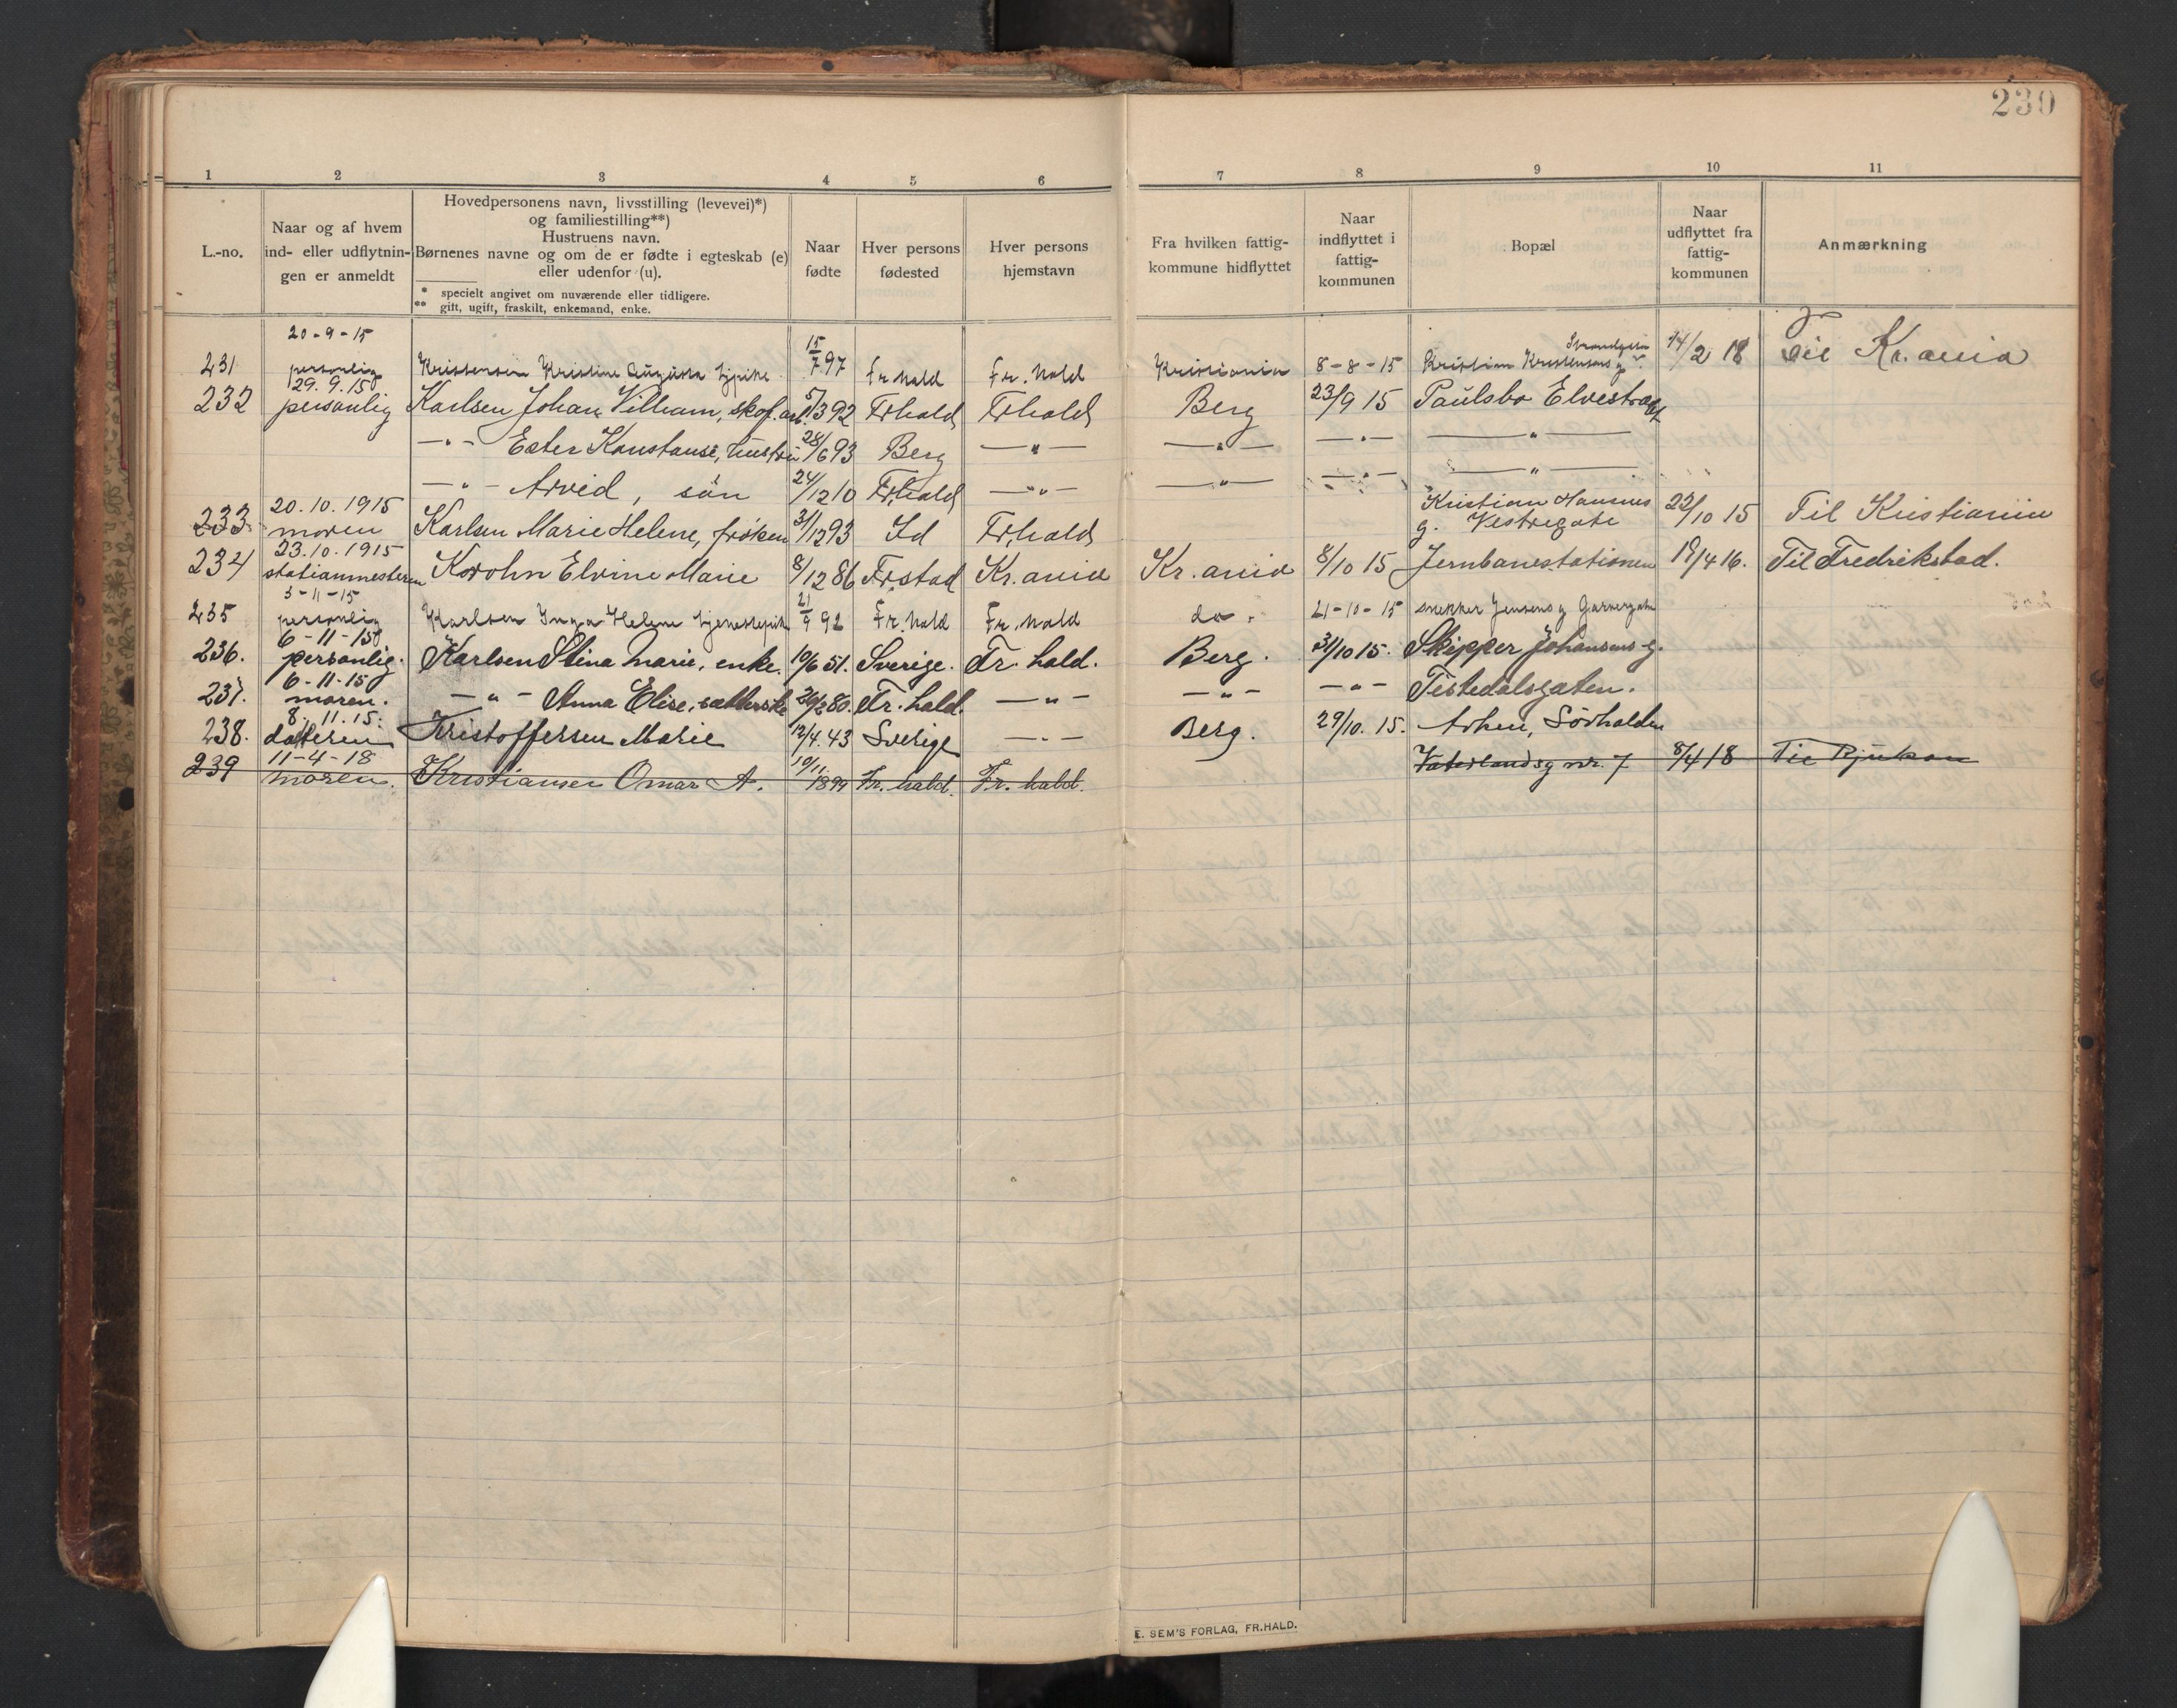 230
1 2 3 4 5 6 7 8 9 10 11
L.-no.
Naar og af hvem
ind- eller udflytnin-
gen er anmeldt
Hovedpersonens navn, livsstilling (levevei)*)
og familiestilling**)
Hustruens navn.
Børnenes navne og om de er fødte i egteskab (e)
eller udenfor (u).
* specielt angivet om nuværende eller tidligere.
** gift, ugift, fraskilt, enkemand, enke.
Naar
fødte
Hver persons
fødested
Hver persons
hjemstavn
Fra hvilken fattig-
kommune hidflyttet
Naar
indflyttet i
fattig-
kommunen
Bopæl
Naar
udflyttet fra
fattig-
kommunen
Anmærkning
20-9-15 Strandgata
231 personlig Kristensen Kristine Augusta tjpike 15/7 97 Fr.hald Fr.hald Kristiania 8-8-15 Kristian Kristensens g 14/2 18 Til Kr.ania
29.9.15
232 personlig Karlsen Johan Vilham, skof.arb. 5/3 92 Frhald Frhald Berg 23/9 15 Paulsbo Elvestragt
—"— Ester Konstanse, hustru 28/6 93 Berg —"— —"— —"— —"—
—"— Arvid, sön 24/12 10 Frhald —"— —"— —"— —"—
20.10.1915 Kristian Hansens
233 moren Karlsen Marie Helene, frøken 31/12 93 Id Frhald g. Vestregate 22/10 15 Til Kristiania
23.10.1915
234 stationmesteren Korohn Elvine Marie 8/12 86 Frstad Kr.ania Kr.ania 8/10 15 Jernbanestationen 19/4 16. Til Fredrikstad.
3-11-15
235 personlig Karlsen Inga Helene tjenestepike 21/9 92 Fr.hald Fr.hald do. 21-10-15 snekker Jensens g Garvergata
6-11-15
236. personlig. Karlsen Stina Marie, enke. 10/6 51. Sverige. Fr.hald. Berg. 31/10 15. Skipper Johansens g.
6-11-15
237. moren. —"— Anna Elise, 26/2 80. Fr.hald. —"— —"— —"— Tistedalsgaten.
8.11.15.
238. datteren Kristoffersen Marie 12/4. 43 Sverige —"— Berg. 29/10. 15. Sörhalden
11-4-18
239 moren. Kristiansen Omar A. 10/11 1899 Fr.hald. Fr.hald. Vaterlandsg nr. 7 8/4 18 Til Rjukan
E. SEM'S FORLAG, FR.HALD.